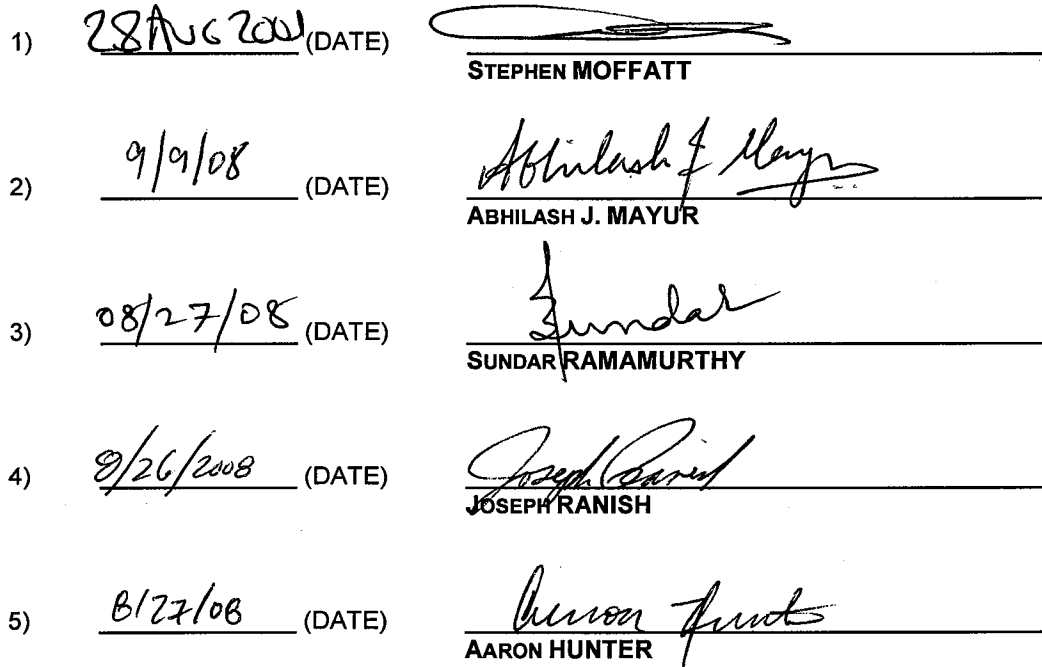 1) 28 AUG (DATE)
STEPHEN MOFFATT
2) 9/9/08 (DATE) Abhilash J Mayur
ABHILASH J. MAYUR
3) 08/27/08 (DATE) Sundar
SUNDAR RAMAMURTHY
4) 8/26/2008 (DATE) Joseph Ranish
JOSEPH RANISH
5) 8/27/08 (DATE) Aaron Hunter
AARON HUNTER